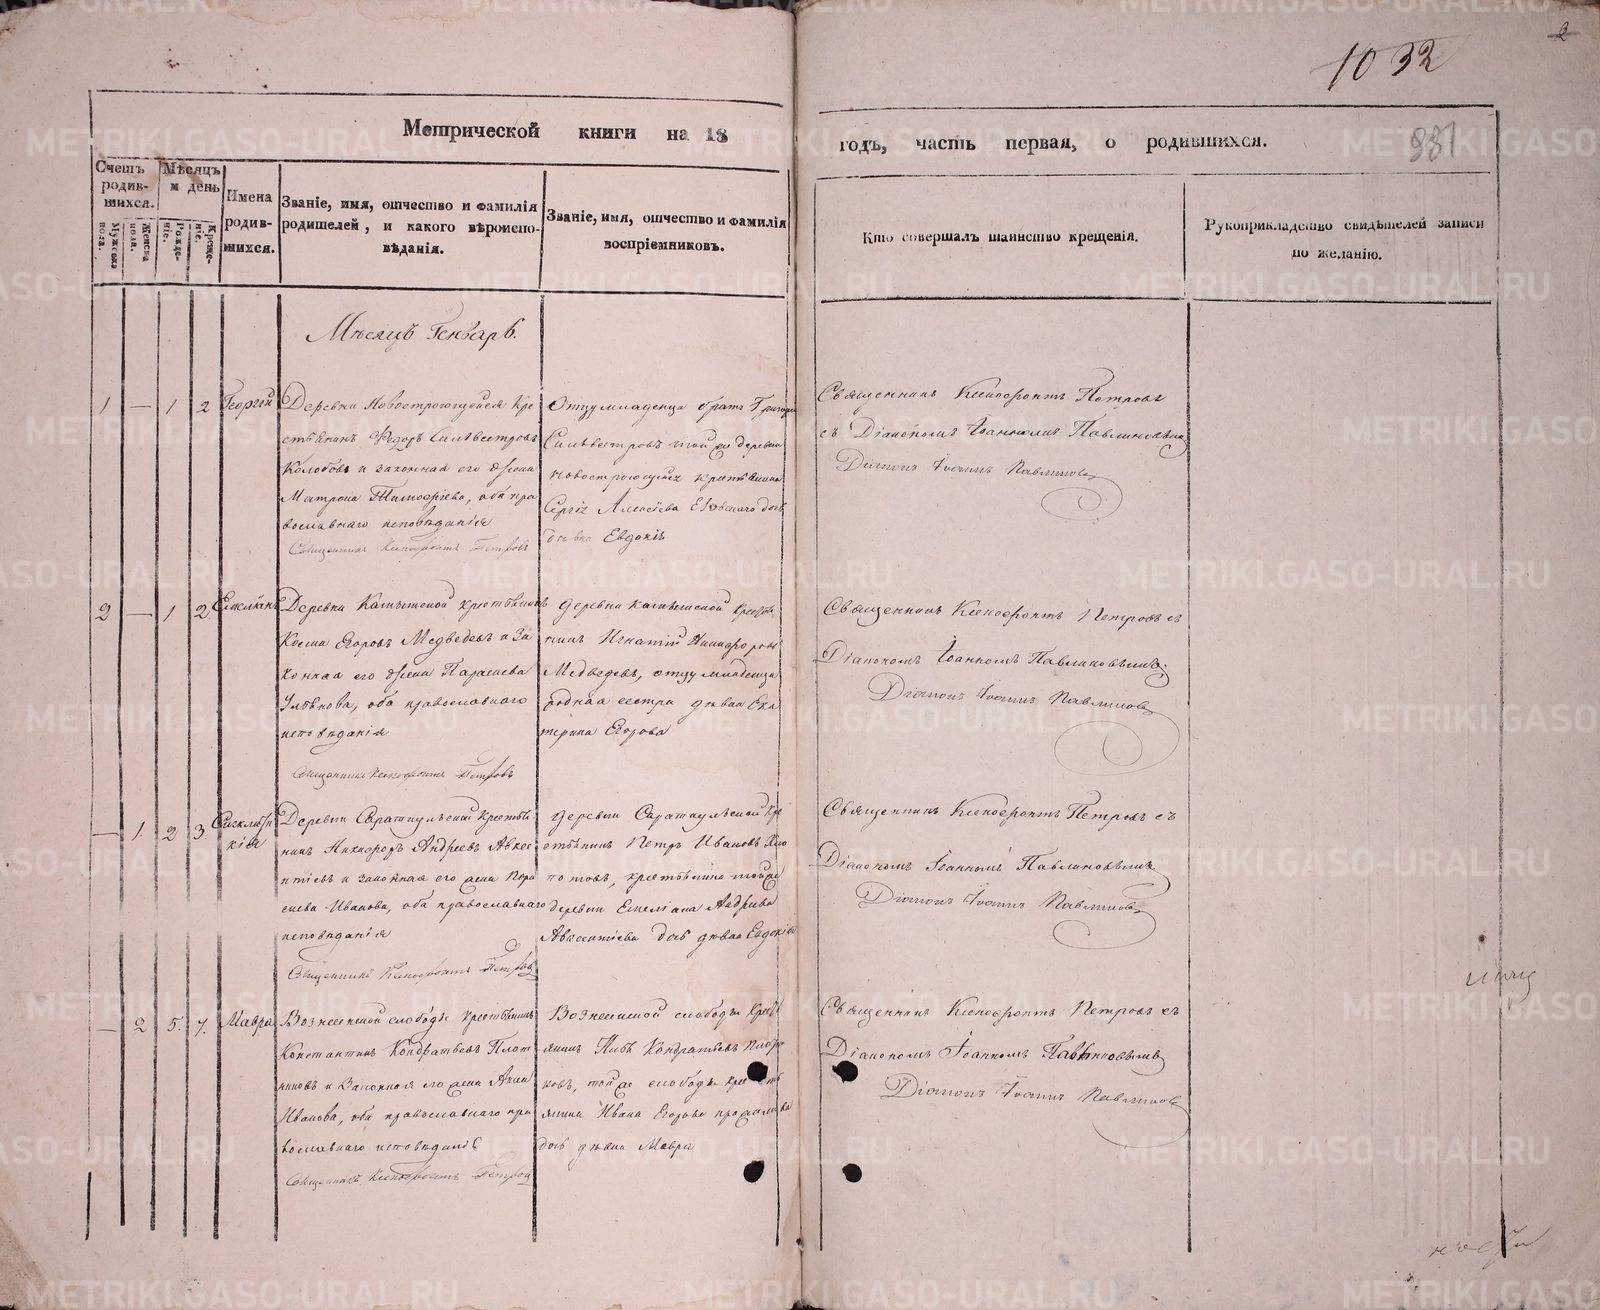 2
1032
881
Метрической книги на 18
годъ, часть первая, о родившихся.
Счетъ родив-шихся.
Мужеска пола.
Женска пола.
Мѣсяцъ и день
Рожде-ніе.
Креще-ніе.
Имена родив-шихся.
Званіе, имя, отчество и фамилія
родителей, и какого вѣроиспо-
вѣданія.
Званіе, имя, отчество и фамилія
воспріемниковъ.
Кто совершалъ таинство крещенія.
Рукоприкладство свидѣтелей записи
по желанію.
Мѣсяцъ Генварь.
1 — 1 2 Георгій
Деревни Новостроющейся кре
стьянинъ Ѳедоръ Силвестровъ
Колобовъ и законная его жена
Матрона Тимоѳеева, оба пра
вославнаго исповѣданія
Священникъ Ксенофонтъ Петровъ
Отцу младенца братъ Григорій
Силвестровъ той же деревни
Новостроющейся крестьянина
Сергія Алексѣева дочь
дѣвка Евдокія
Священникъ Ксенофонтъ Петровъ
съ Діакономъ Іоанномъ Павлиновымъ
Діаконъ Іоаннъ Павлиновъ
2 — 1 2 Емеліанъ
Деревни Камышенской крестьянинъ
Косма Егоровъ Медведевъ и за
конная его жена Параскева
Ульянова, оба православнаго
исповѣданія
Священникъ Ксенофонтъ Петровъ
деревни Камышенской крестья
нинъ Игнатій Никифоровъ
Медведевъ, отцу младенца
родная сестра дѣвка Ека
терина Егорова
Священникъ Ксенофонтъ Петровъ съ
Діакономъ Іоанномъ Павлиновымъ
Діаконъ Іоаннъ Павлиновъ
— 1. 2 3. Сигклити
кія
Деревни Сараткулской крестья
нинъ Никифоръ Андреевъ Авксе
нтіевъ и законная его жена Пара
скева Иванова, оба православнаго
исповѣданія
Священникъ Ксенофонтъ Петровъ
деревни Сараткулской кре
стьянинъ Петръ Ивановъ
крестьянина той же
деревни Емеліана Андреева
Авксентіева дочь дѣвка Евдокія
Священникъ Ксенофонтъ Петровъ съ
Діакономъ Іоанномъ Павлиновымъ
Діаконъ Іоаннъ Павлиновъ
— 2 5. 7. Мавра
Вознесенской слободы крестьянинъ
Константинъ Кондратьевъ Плот
никовъ и законная его жена Анна
Иванова, оба православнаго пра
вославнаго исповѣданія
Священникъ Ксенофонтъ Петровъ
Вознесенской слободы крест
янинъ Глѣбъ Кондратьевъ
ковъ, той же слободы крест
янина Ивана Егорова
дочь дѣвка Мавра
Священникъ Ксенофонтъ Петровъ съ
Діакономъ Іоанномъ Павлиновымъ
Діаконъ Іоаннъ Павлиновъ
METRIKI.GASO-URAL.RU